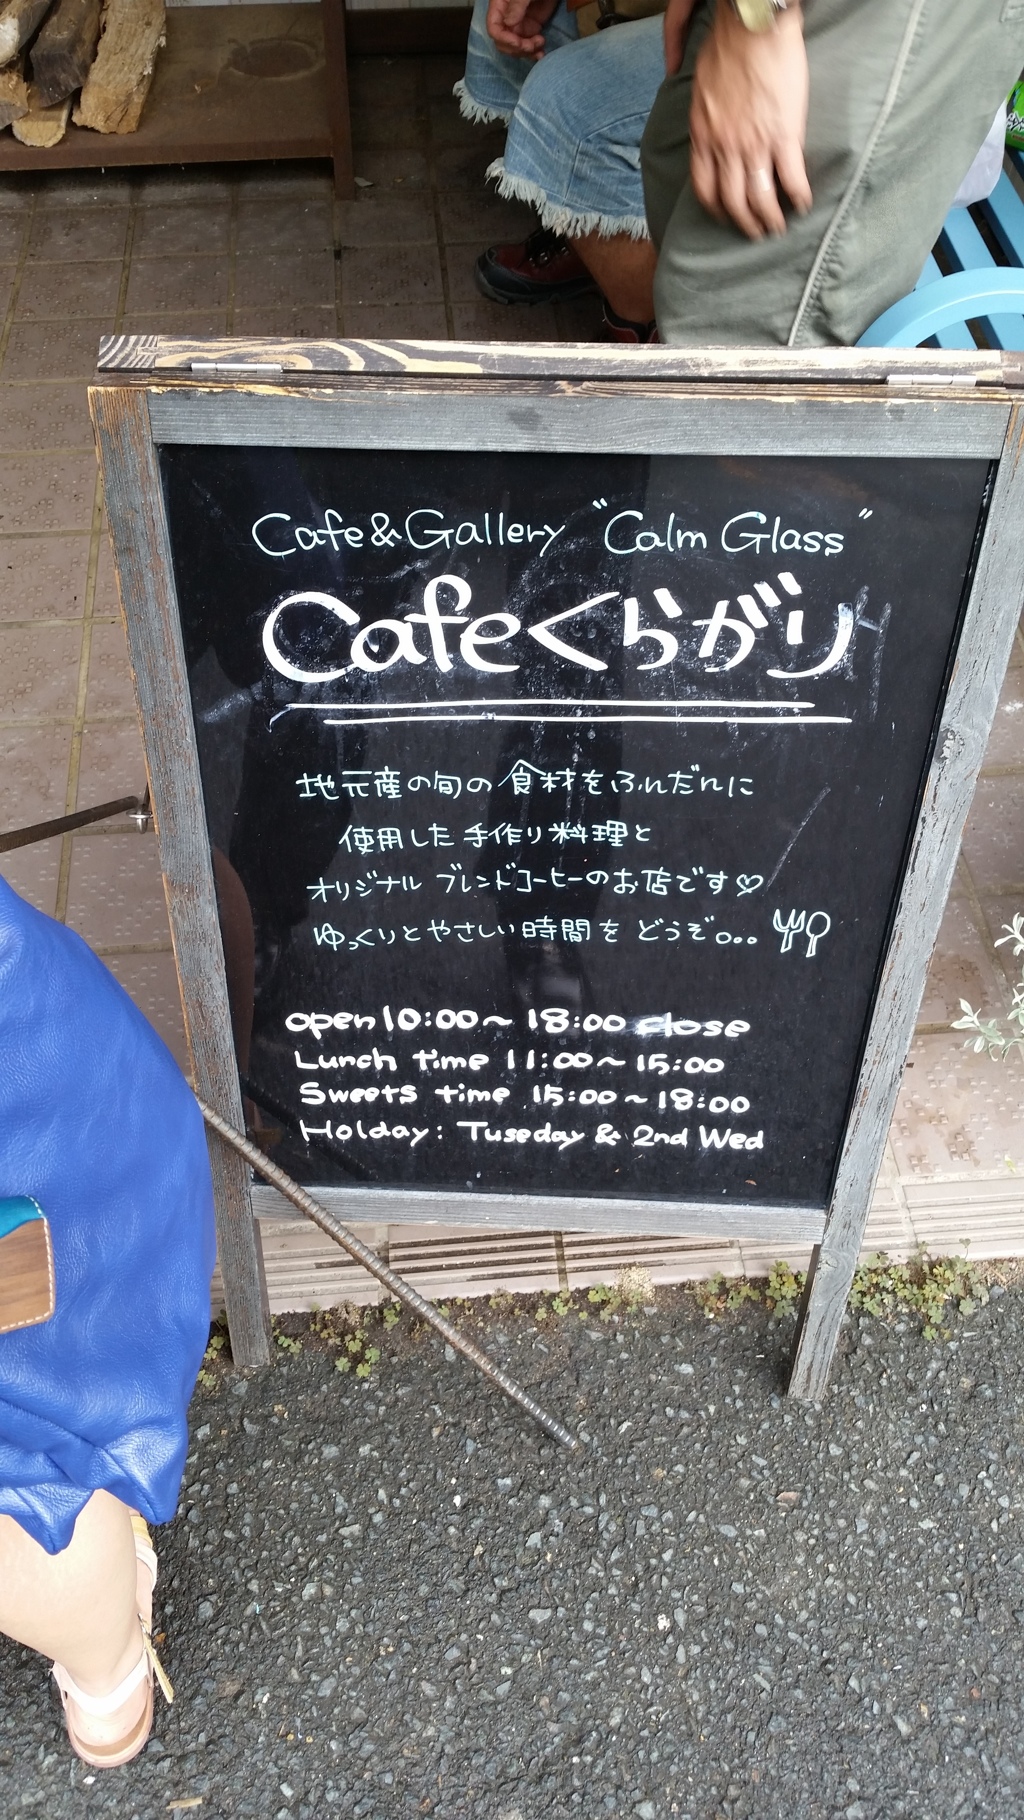 Cafe&Gallery "Calm Glass"
Cafeくらがり
地元産の旬の食材をふんだんに
使用した手作り料理と
オリジナル ブレンドコーヒーのお店です♡
ゆっくりとやさしい時間を どうぞ。。。
open 10:00~18:00 close
Lunch time 11:00~15:00
Sweets time 15:00~18:00
Holday: Tuseday & 2nd Wed